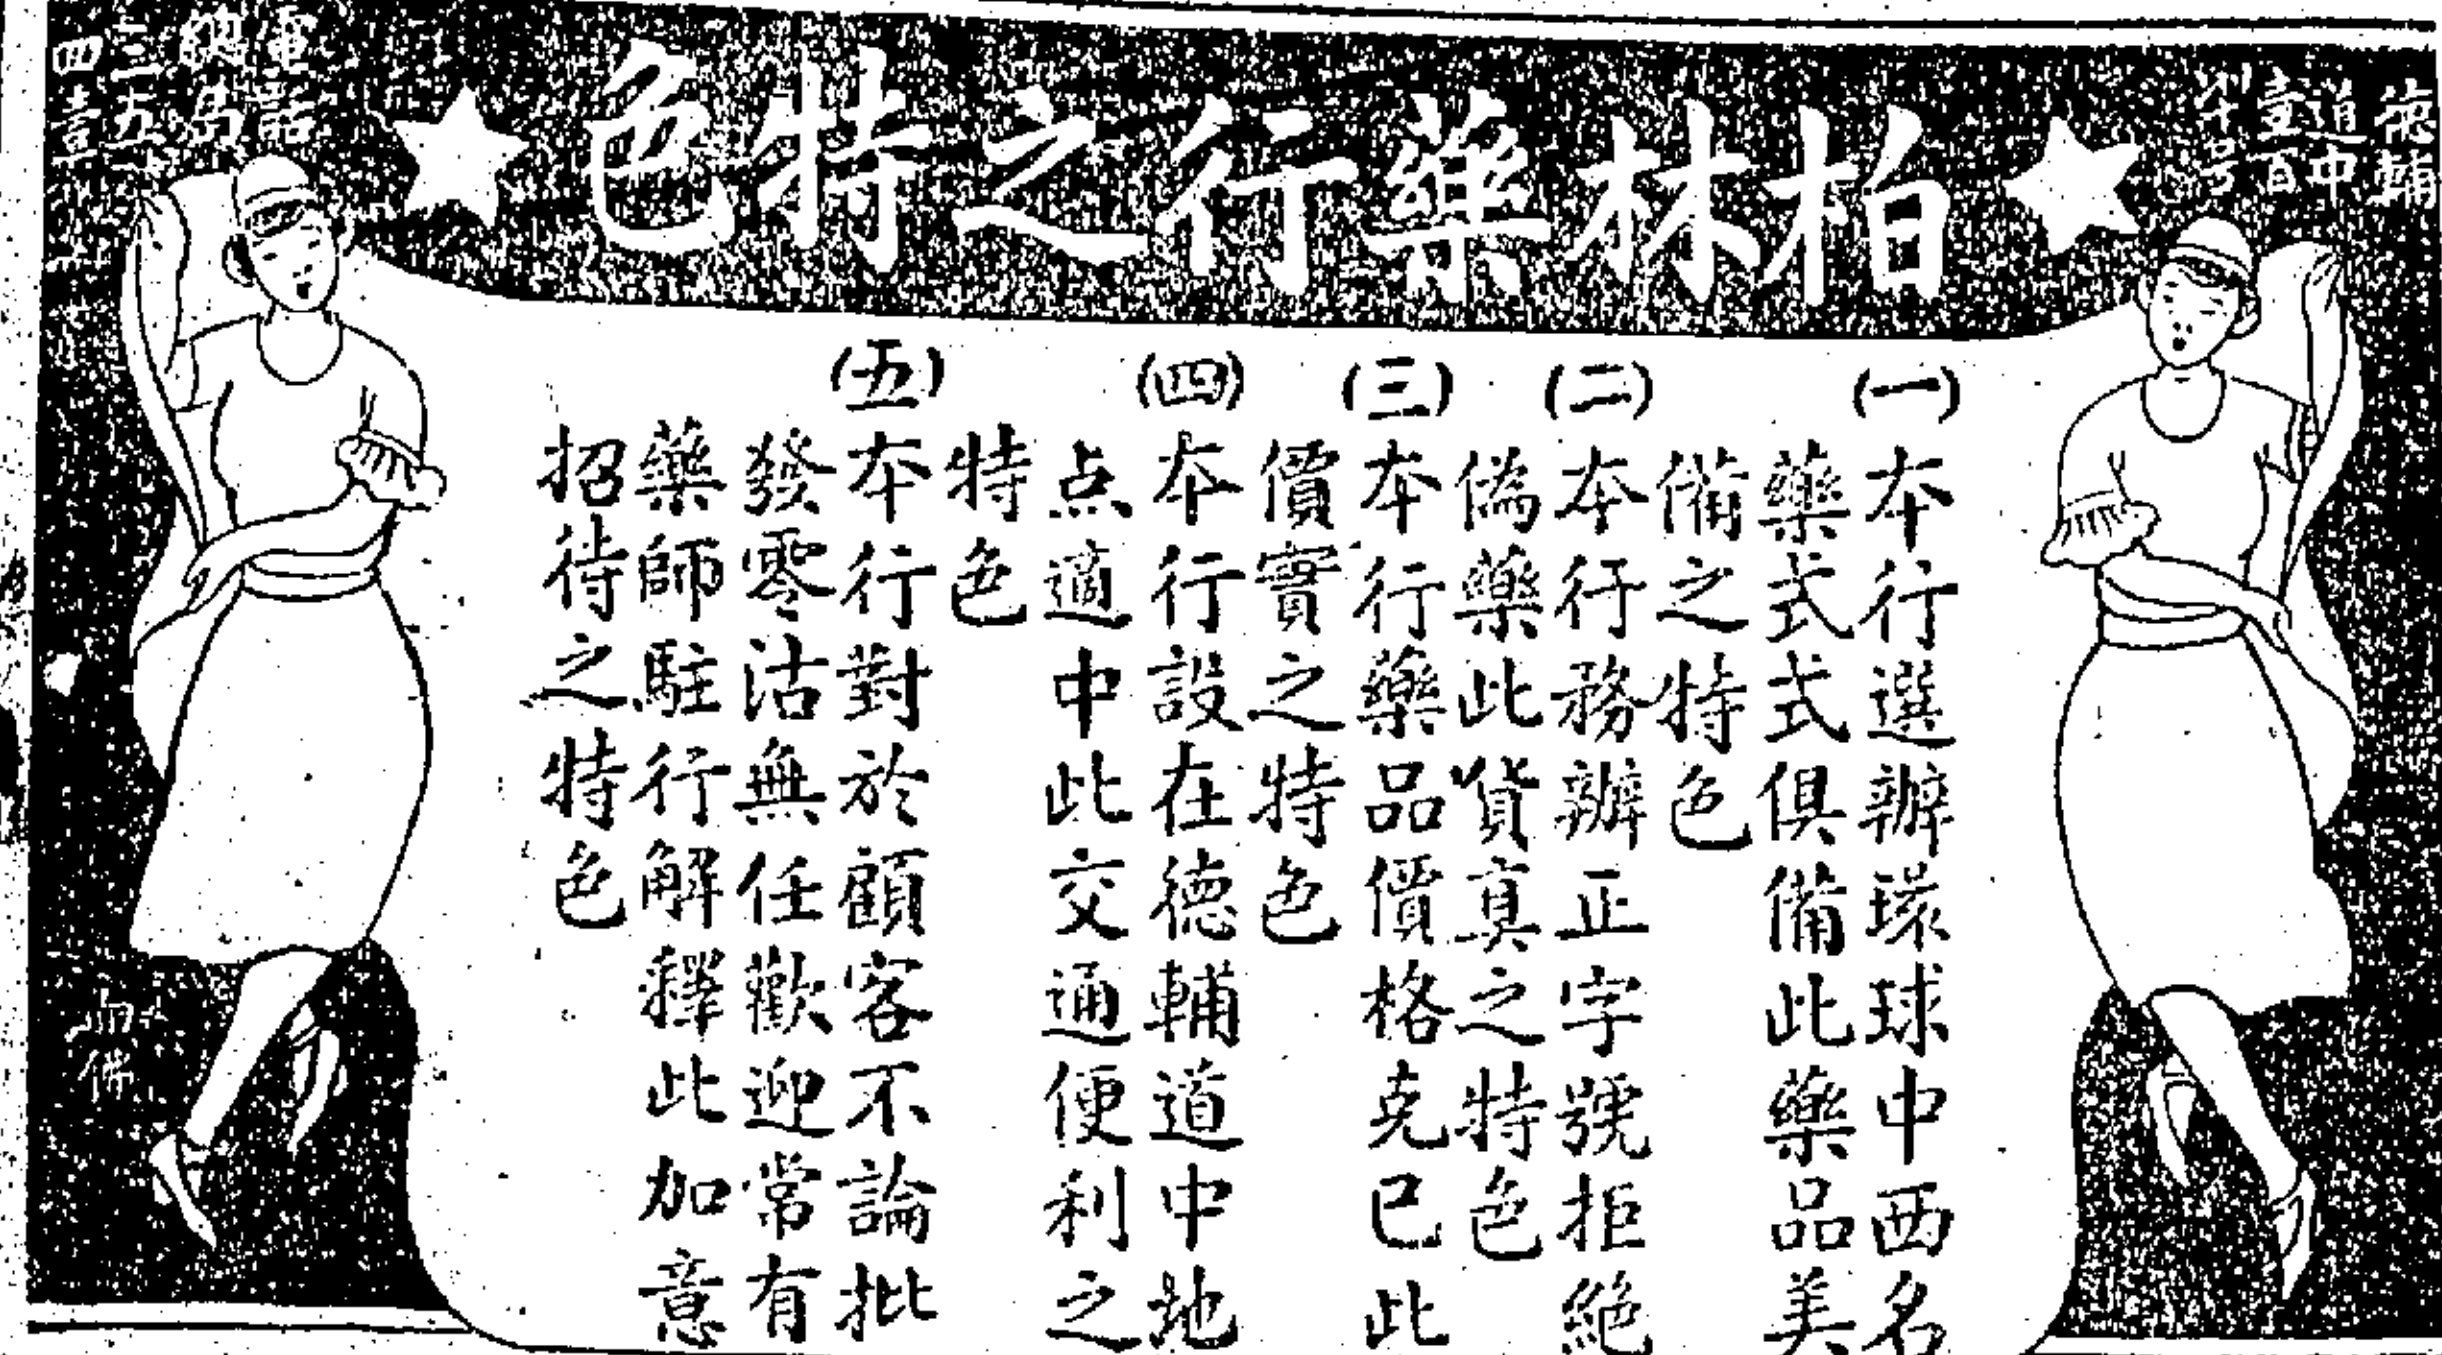 柏林藥行之特色
德輔
道中
壹百
電話
四壹
(一)本行選辦環球中西名
藥式式俱備此藥品美
備之特色
(二)本行務辦正字號拒絕
偽藥此貨真之特色
(三)本行藥品價格克已此
價實之特色
(四)本行設在德輔道中地
点適中此交通便利之
特色
(五)本行對於顧客不論批
發零沽無任歡迎常有
藥師駐行解釋此加意
招待之特色